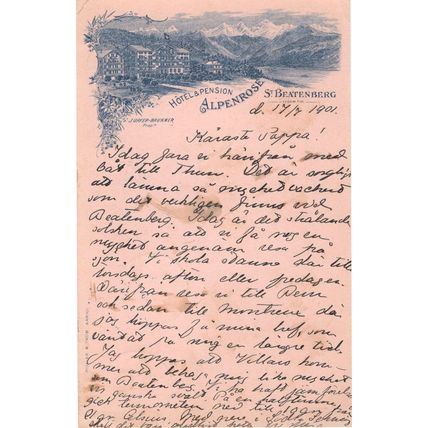 HÔTEL & PENSION
ALPENROSE
ST BEATENBERG
d. 17/7 1901.
Käraste Pappa!
Idag fara vi härifrån med
båt till Thun. Det är sorgligt
att lämna så mycket vackert
som det verkligen finns vid
Beatenberg. Idag är det strålande
solsken så att vi få nog en
mycket angenäm resa på
sjön. Vi skola stanna där till
torsdags afton eller fredagen
Därifrån resa vi till Bern
och sedan till Montreux där
jag hoppas få mina bref, som
väntat på mig en längre tid.
Jag hoppas att Villars kom-
mer att behaga mig lika mycket
som Beatenberg. Vi ha haft
ganska svalt. På en
gick termometern ned till
gr. Celsius. Med